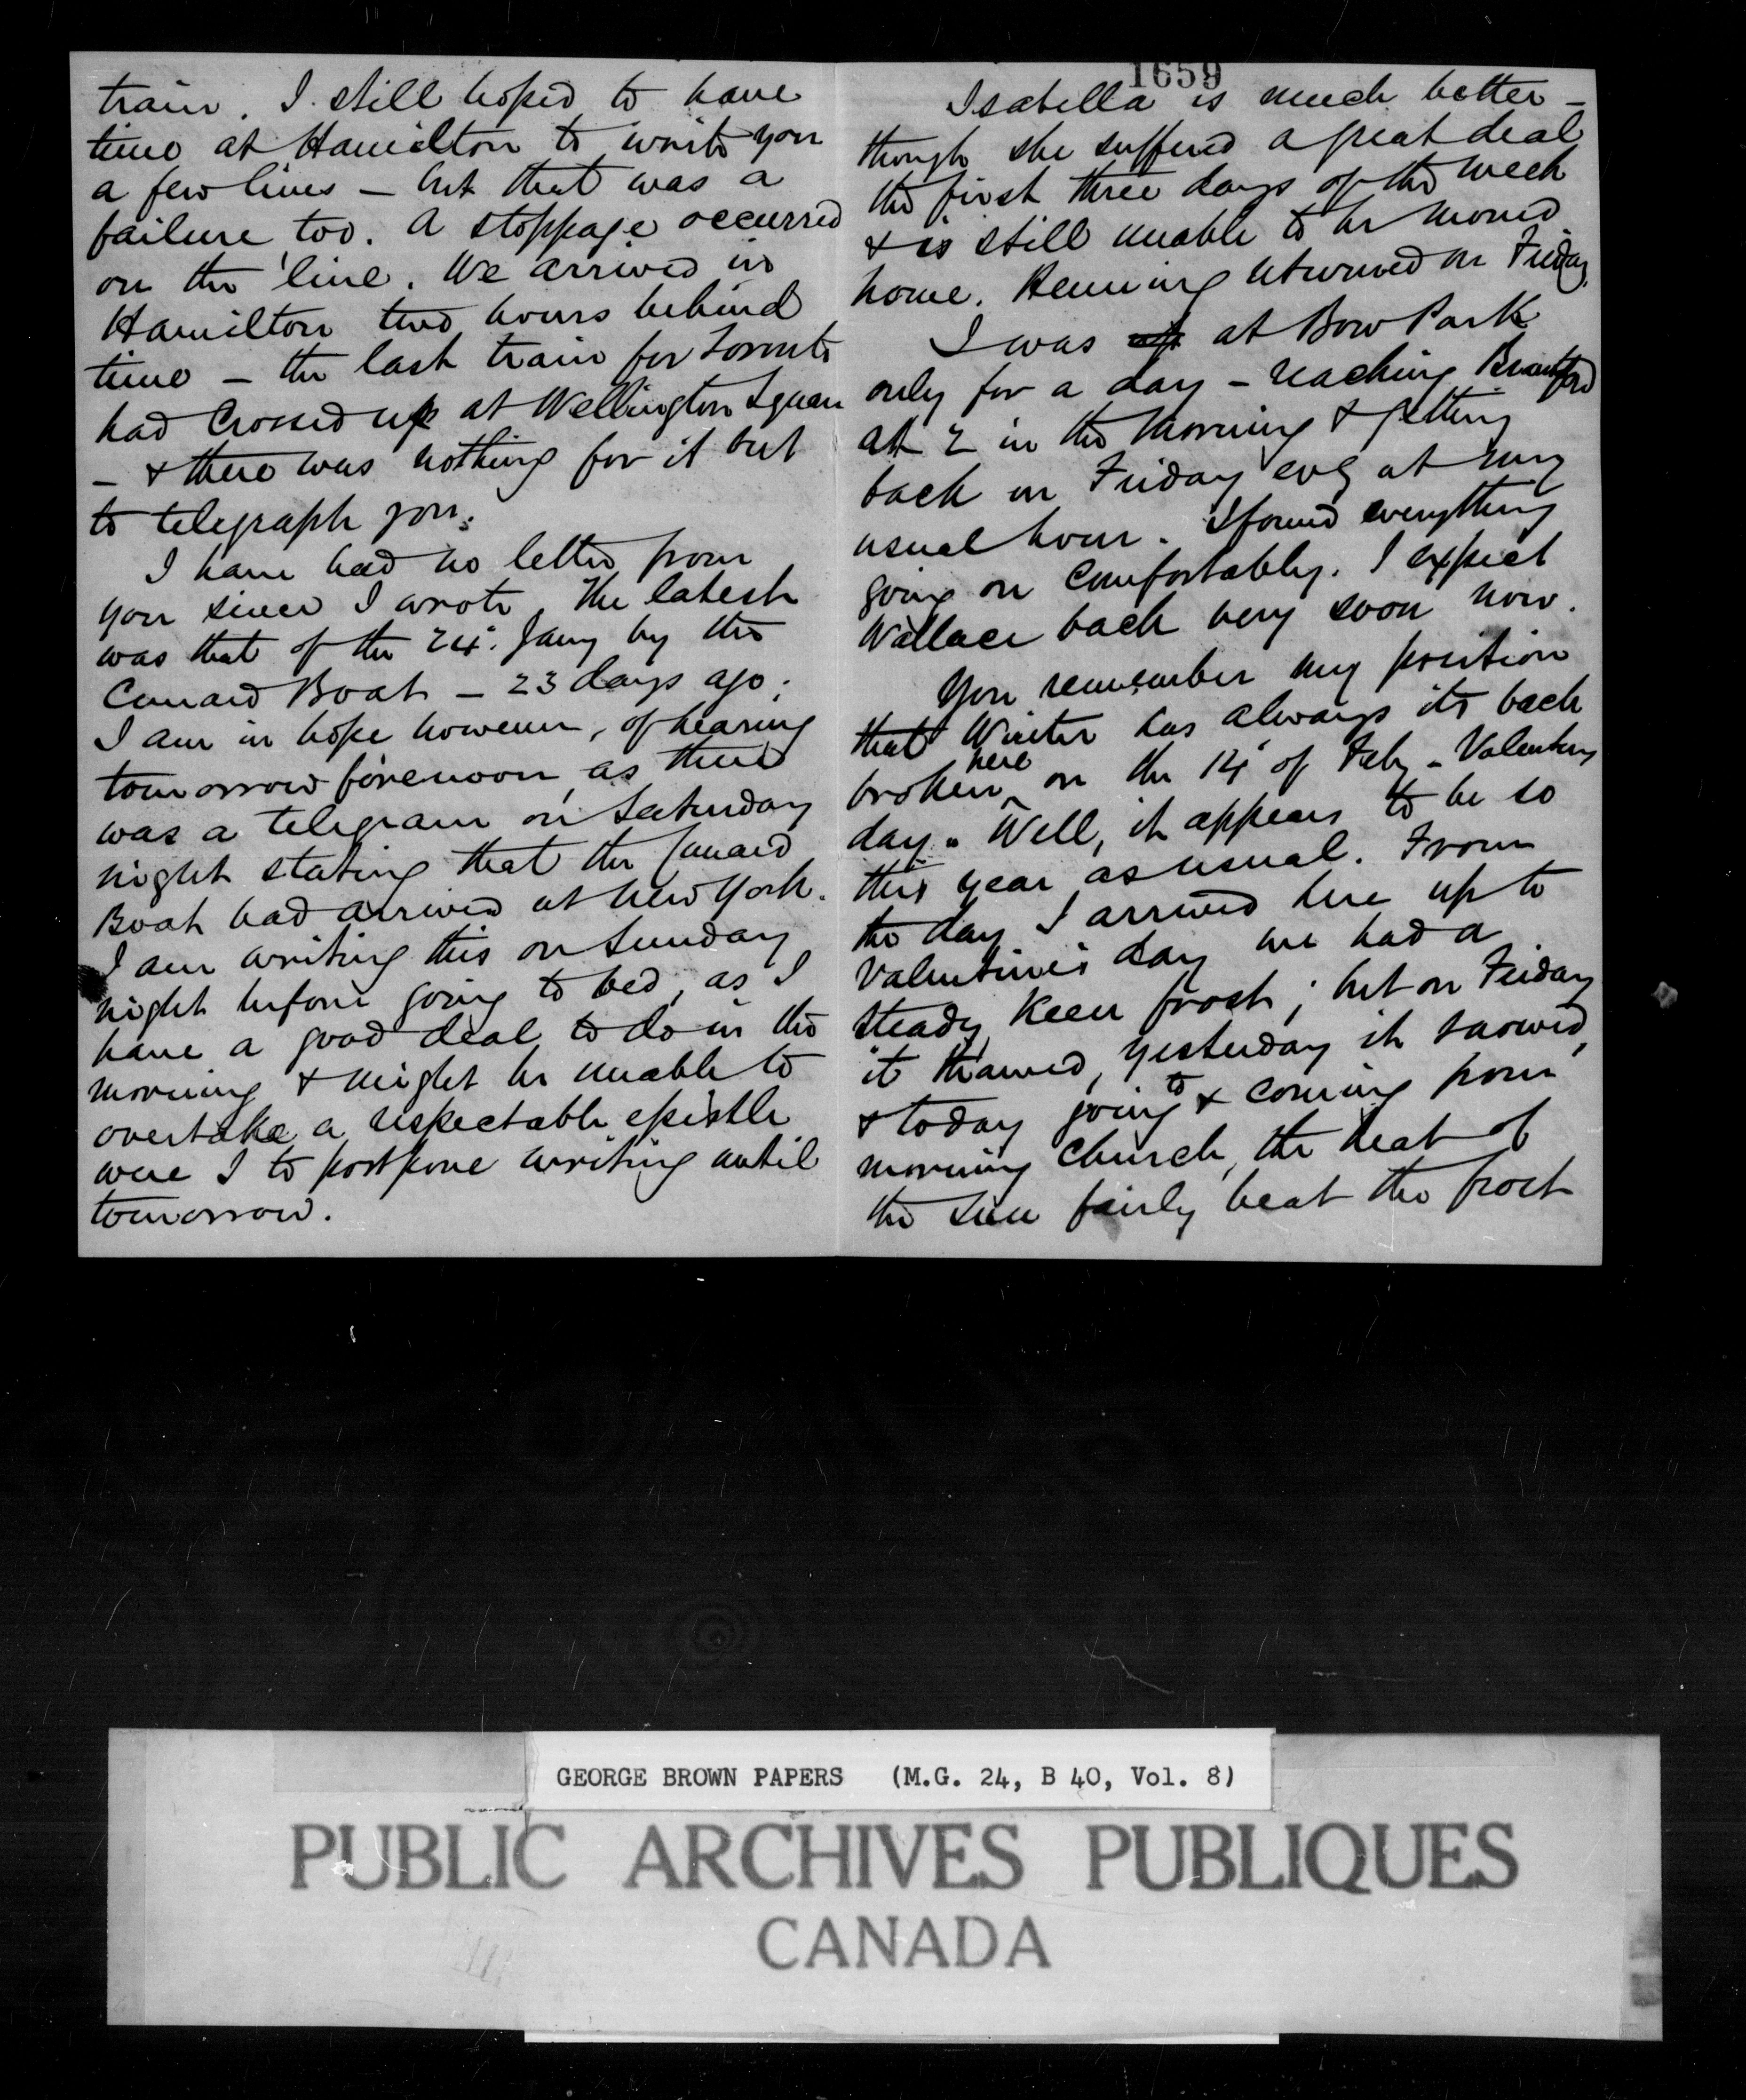 train. I still hoped to have
time at Hamilton to write you
a few lines – but that was a
failure too. A stoppage occurred
on the line. We arrived in
Hamilton two hours behind
time – the last train for Toronto
had crossed up at Wellington Square
– & there was nothing for it but
to telegraph you.
I have had no letter from
you since I wrote. The latest
was that of the 24. Jany by the
Cunard Boat – 23 days ago.
I am in hope however, of hearing
tomorrow forenoon, as there
was a telegram on Saturday
night stating that the Cunard
Boat had arrived at New York.
I am writing this on Sunday
night before going to bed, as I
have a good deal to do in the
morning & might be unable to
overtake a respectable epistle
were I to postpone writing until
tomorrow.
1659
Isabella is much better –
though she suffered a great deal
the first three days of the week
& is still unable to be moved
home. Henning returned on Friday.
I was at Bow Park
only for a day – reaching Brantford
at 2 in the morning & getting
back on Friday evg at my
usual hour. I found everything
going on comfortably. I expect
Wallace back very soon now.
You remember my position
that Winter has always its back
broken here on the 14 of Feby – Valentines
day. Well, it appears to be so
this year as usual. From
the day I arrived here up to
Valentine's day we had a
steady keen frost; but on Friday
it thawed, yesterday it snowed,
& today going to & coming from
morning church, the heat of
the sun fairly beat the frost
GEORGE BROWN PAPERS (M.G. 24, B 40, Vol. 8)
PUBLIC ARCHIVES PUBLIQUES
CANADA